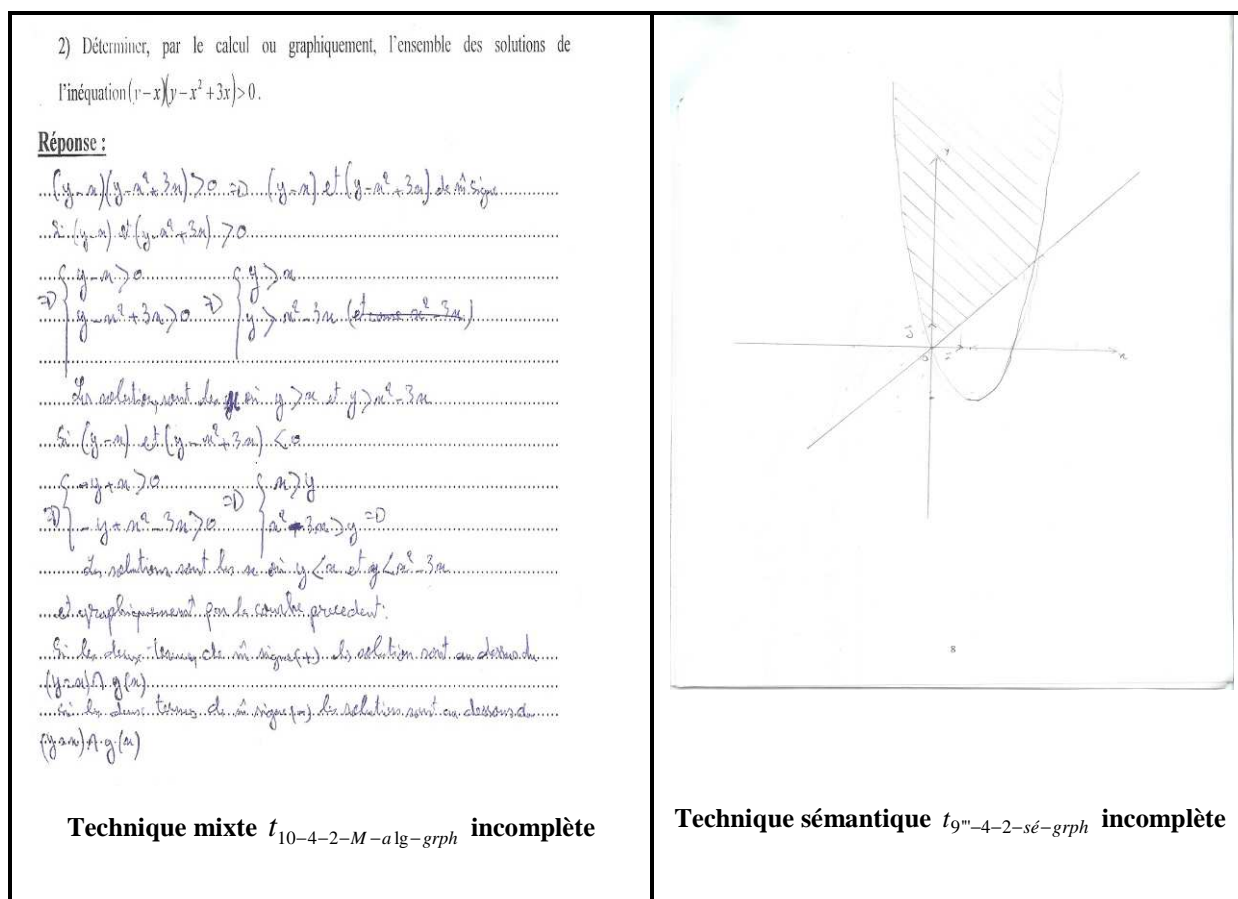 2) Déterminer, par le calcul ou graphiquement, l'ensemble des solutions de
l'inéquation (y-x)(y-x²+3x)>0.
Réponse :
(y-x)(y-x²+3x)>0 => (y-x) et (y-x²+3x) de m̂ signe
Si (y-x) et (y-x²+3x) >0
=> { y-x>0 => { y>x
y-x²+3x>0 y> x²-3x
Les solution, sont les x où y>x et y>x²-3x
Si (y-x) et (y-x²+3x) <0
=> { -y+x>0 => { x>y
-y+x²-3x>0 x²-3x>y =>
Les solutions sont les x où y<x et y<x²-3x
et graphiquement par la courbe precedent:
Si les deux termes de m̂ signe(+) les solution sont au dessus du
(y=x)∩ g(x)
Si les deux termes de m̂ signe(-) les solutions sont au dessous du
(y=x)∩ g(x)
Technique mixte t10-4-2-M-alg-grph incomplète
y
x
O
8
Technique sémantique t9'''-4-2-sé-grph incomplète